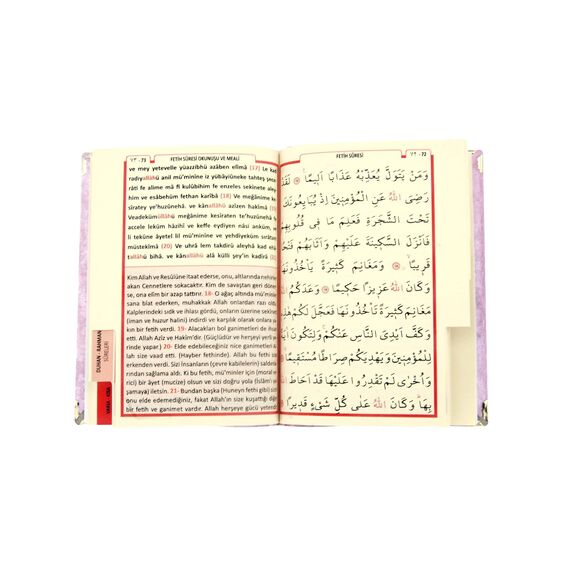 ٧٣ -73
FETİH SÛRESİ OKUNUŞU VE MEALİ
ve mey yetevelle yüazzibhü azâben elîmâ (17) Le kad
radıyallâhü anil mü'minîne iz yübâyiûneke tahteş şeca
rati fe alime mâ fî kulûbihim fe enzeles sekînete aley
him ve esâbehüm fethan karîbâ (18) Ve meğânime ke
sîratey ye'huzûnehâ. ve kânallâhü azîzen hakîmâ (19)
Veadekümüllâhü meğânime kesîraten te'huzûnehâ fe
accele leküm hâzihî ve keffe eydiyen nâsi anküm. ve
li tekûne âyetel lil mü'minîne ve yehdiyeküm sırâtam
müstekîmâ (20) Ve uhrâ lem takdirû aleyhâ kad ehâ
tallâhü bihâ. ve kânallâhü alâ külli şey'in kadîrâ (21)
Kim Allah ve Resûlüne itaat ederse, onu, altlarında nehirler
akan Cennetlere sokacaktır. Kim de savaştan geri döner
se, ona elîm bir azap tattırır. 18- O ağaç altında mü'min
sana bîat ederken, muhakkak Allah onlardan razı oldu.
Kalplerindeki sıdk ve ihlası gördü, onların üzerine sekînet
(iman ve huzur halini) indirdi ve karşılık olarak onlara ya
kın bir fetih verdi. 19- Alacakları bol ganimetleri de ihsan
etti. Allah Azîz ve Hakîm'dir. (Güçlüdür ve herşeyi hikmetle
yerinde yapar.) 20- Elde edebileceğiniz nice ganimetleri Al
lah size vaad etti. (Hayber fethinde). Allah bu fethi
serbest kıldı. Sizi İnsanların (çevre kabilelerin) saldırısın
dan korudu. Bu fetih, mü'minler için (moral ve
rici) bir âyet (mucize) olsun ve sizi doğru yola (İslâm'ı ya
şamaya) iletsin. 21- Bundan başka (Huneyn fethi gibi) sizin
onu elde edemediğiniz, fakat Allah'ın size kuşattığı diğer
bir fetih ve ganimet vardır. Allah herşeye gücü yetendir.
DUHAN - RAHMAN
SÛRELERİ
٧٢ -72
FETİH SÛRESİ
وَمَنْ يَتَوَلَّ يُعَذِّبْهُ عَذَابًا اَلِيمًا ﴿١٧﴾ لَقَدْ
رَضِىَ اللّٰهُ عَنِ الْمُؤْمِنِينَ اِذْ يُبَايِعُونَكَ
تَحْتَ الشَّجَرَةِ فَعَلِمَ مَا فِى قُلُوبِهِمْ
فَاَنْزَلَ السَّكِينَةَ عَلَيْهِمْ وَاَثَابَهُمْ فَتْحًا
قَرِيبًا ﴿١٨﴾ وَمَغَانِمَ كَثِيرَةً يَأْخُذُونَهَا
وَكَانَ اللّٰهُ عَزِيزًا حَكِيمًا ﴿١٩﴾ وَعَدَكُمُ اللّٰهُ
مَغَانِمَ كَثِيرَةً تَأْخُذُونَهَا فَعَجَّلَ لَكُمْ هٰذِهِ
وَكَفَّ اَيْدِىَ النَّاسِ عَنْكُمْ وَلِتَكُونَ اٰيَةً
لِلْمُؤْمِنِينَ وَيَهْدِيَكُمْ صِرَاطًا مُسْتَقِيمًا ﴿٢٠﴾
وَاُخْرٰى لَمْ تَقْدِرُوا عَلَيْهَا قَدْ اَحَاطَ اللّٰهُ
بِهَا وَكَانَ اللّٰهُ عَلٰى كُلِّ شَىْءٍ قَدِيرًا ﴿٢١﴾